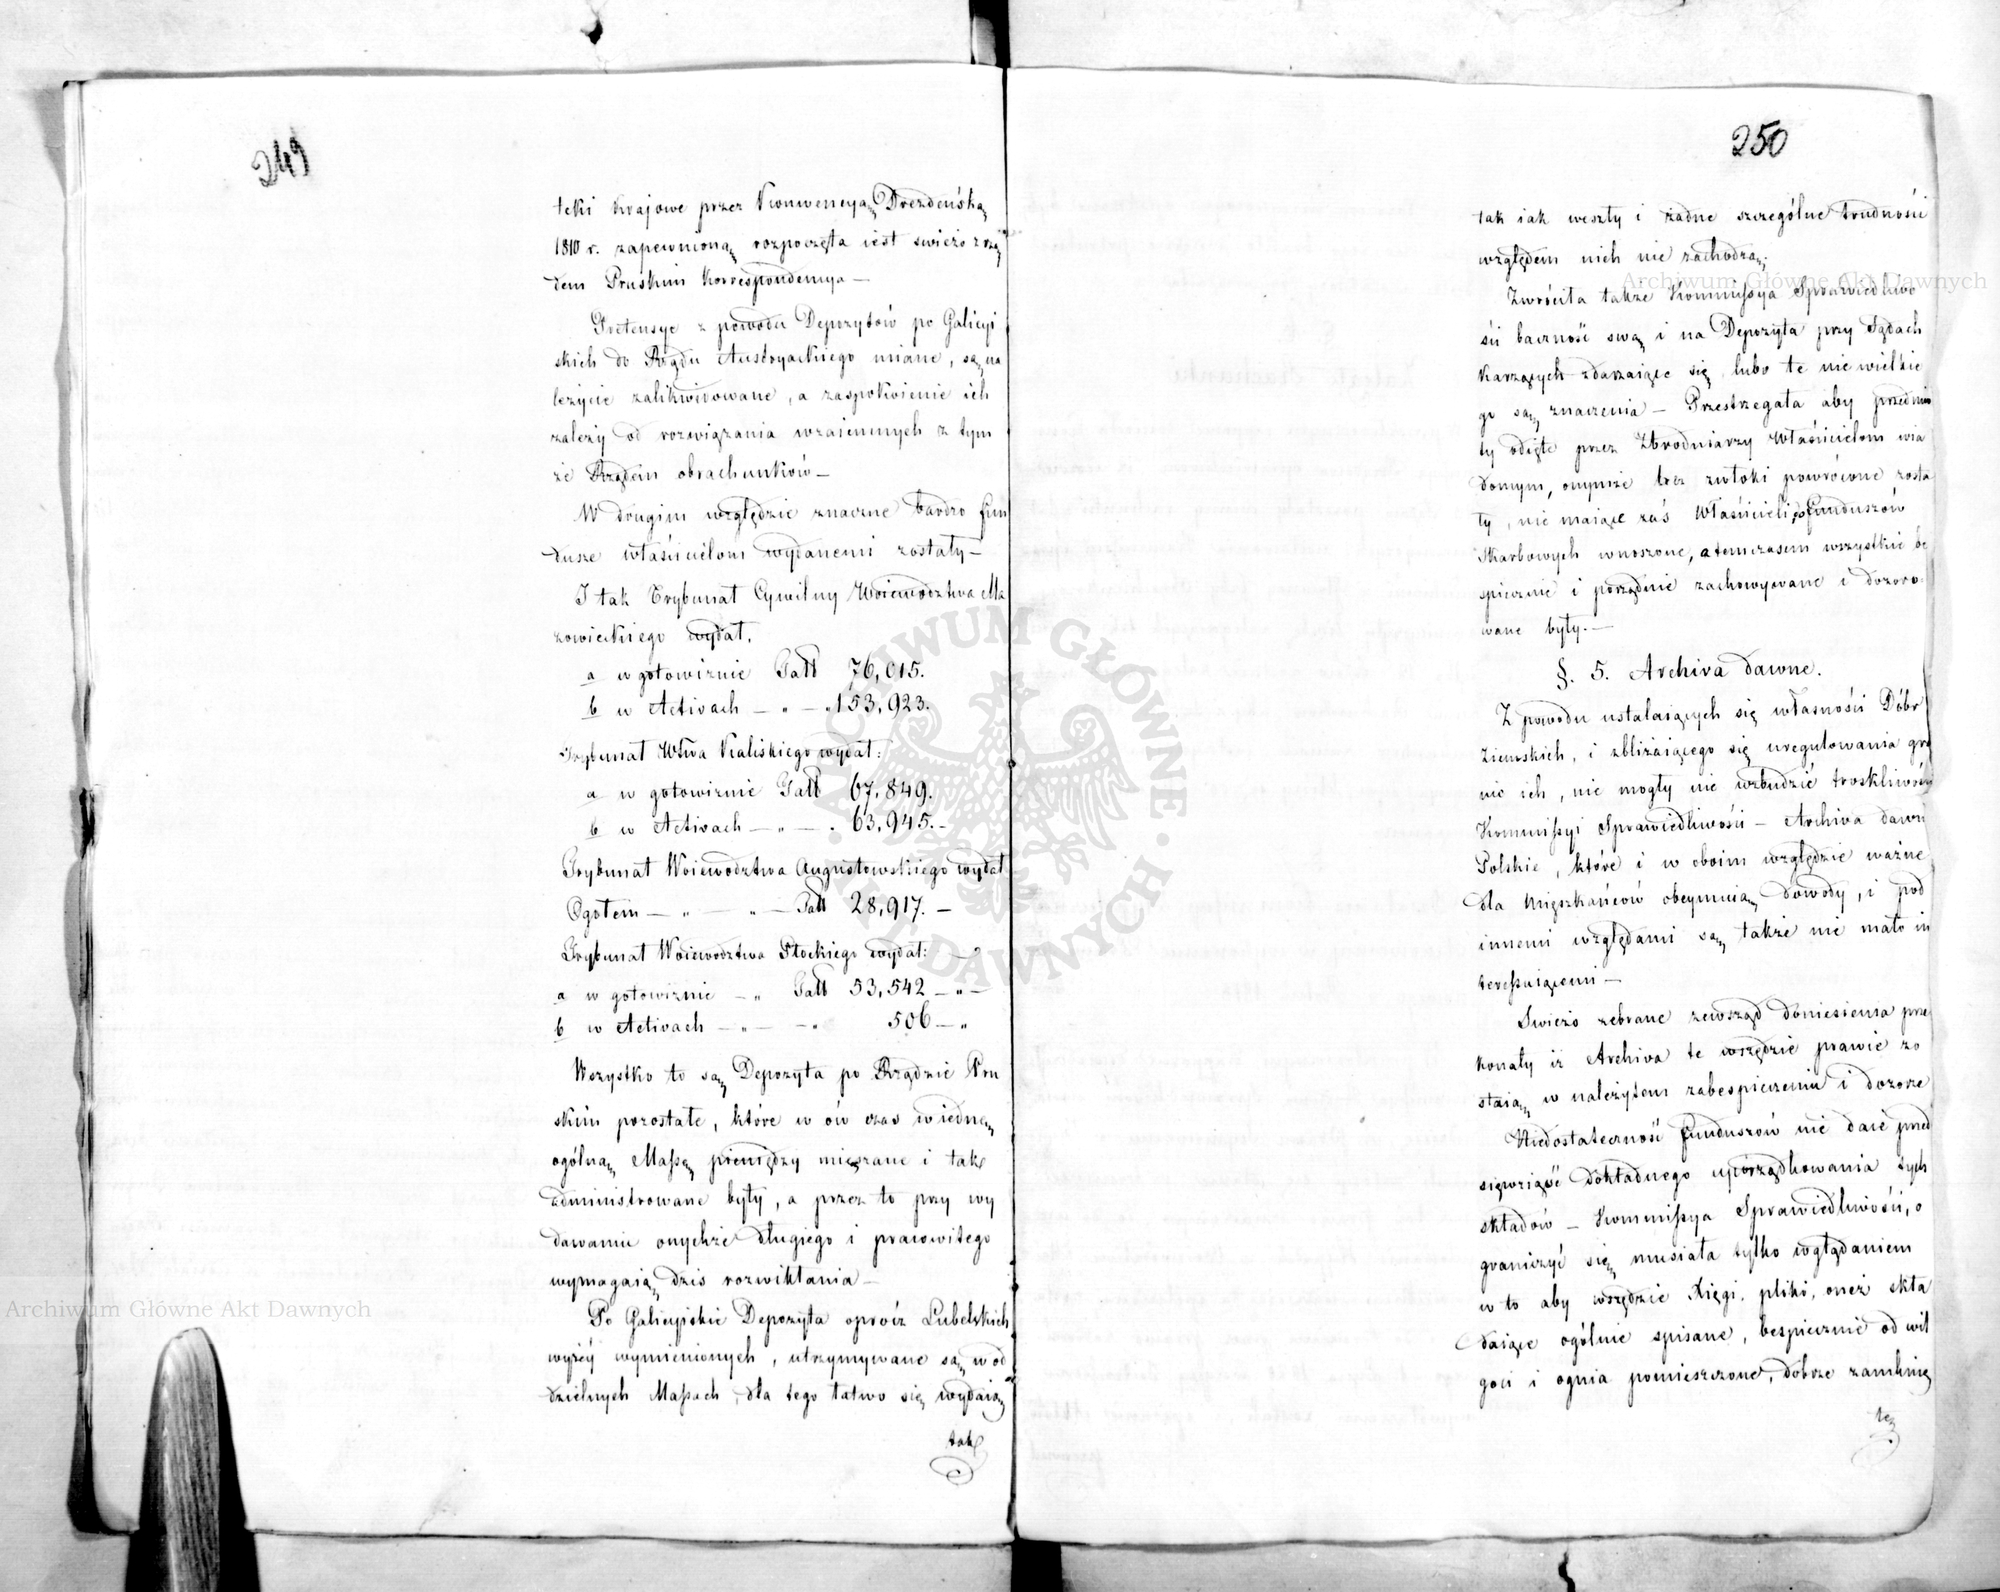 249
teki krajowe przez Konwencyą Drezdeńską
1810 r. zapewnioną rozpoczęta iest świeżo z rzą
dem Pruskim korrespondencya —
Pretensye z powodu Depozytów po Galicyi
skich do Rządu Austryackiego miane, są na
leżycie zalikwidowane, a zaspokoienie ich
zależy od rozwiązania wzaiemnych z tym
że Rządem obrachunków —
W drugim względzie znaczne bardzo fun
dusze właścicielom wydanemi zostały —
I tak Trybunał Cywilny Woiewództwa Ma
zowieckiego wydał,
a w gotowiznie Tall 76,015.
b w Activach — " — " 153,923.
Trybunał Wtwa Kaliskiego wydał:
a w gotowiznie Tall 67,849.
b w Activach — " — . 63,945. —
Trybunał Woiewództwa Augustowskiego wydał
Ogółem — " — " — Tall 28,917. —
Trybunał Woiewództwa Płockiego wydał: — "
a w gotowiznie — " Tall 53,542 — " —
b w Activach — " — — " 506 — "
Wszystko to są Depozyta po Rządzie Pru
skim pozostałe, które w ów czas w iedną
ogólną Massę pieniędzy mieszane i tak
administrowane były, a przez to przy wy
dawaniu onychże długiego i pracowitego
wymagaią dzis rozwikłania —
Po Galicyiskie Depozyta oprócz Lubelskich
wyżéy wymienionych, utrzymywane są w od
dzielnych Massach, dla tego łatwo się wydaią
tak
250
tak iak weszły i żadne szczególne trudności
względem nich nie zachodzą.
Zwróciła także Kommissya Sprawiedliwo
ści baczność swą i na Depozyta przy Sądach
Karzących zdarzaiące się, lubo te nie wielkie
go są znaczenia — Przestrzegała aby przedmio
ty odięte przez Zbrodniarzy Właścicielom wia
domym, onymże bez zwłoki powrócone zosta
ły, nie maiące zaś Właścicieli do Funduszów
Skarbowych wnoszone, a temczasem wszystkie be
spiecznie i porządnie zachowywane i dozoro
wane były. —
§. 5. Archiva dawne.
Z powodu ustalaiących się własności Dóbr
Ziemskich, i zbliżaiącego się uregulowania gra
nic ich, nie mogły nie wzbudzić troskliwości
Kommissyi Sprawiedliwości — Archiva dawne
Polskie, które i w oboim względzie ważne
dla Mieszkańców obeymuią dowody, i pod
innemi względami są także nie mało in
teressuiącemi —
Swieżo zebrane zewsząd doniesienia prze
konały iż Archiva te wszędzie prawie zo
staią w należytem zabespieczeniu i dozorze
Niedostateczność funduszów nie daie przed
sięwziąść dokładnego uporządkowania tych
składów — Kommissya Sprawiedliwości, o
graniczyć się musiała tylko wglądaniem
w to aby wszędzie Xięgi, pliki, oneż skła
daiące ogólnie spisane, bespiecznie od wil
goci i ognia pomieszczone, dobrze zamknię
te
Archiwum Główne Akt Dawnych
Archiwum Główne Akt Dawnych
ARCHIWUM GŁÓWNE · AKT DAWNYCH ·